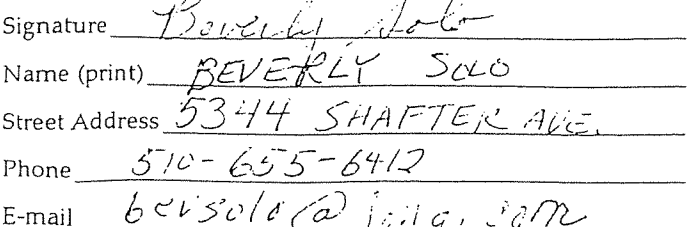 Signature Beverly Solo
Name (print) BEVERLY SOLO
Street Address 5344 SHAFTER AVE.
Phone 510-655-6412
E-mail